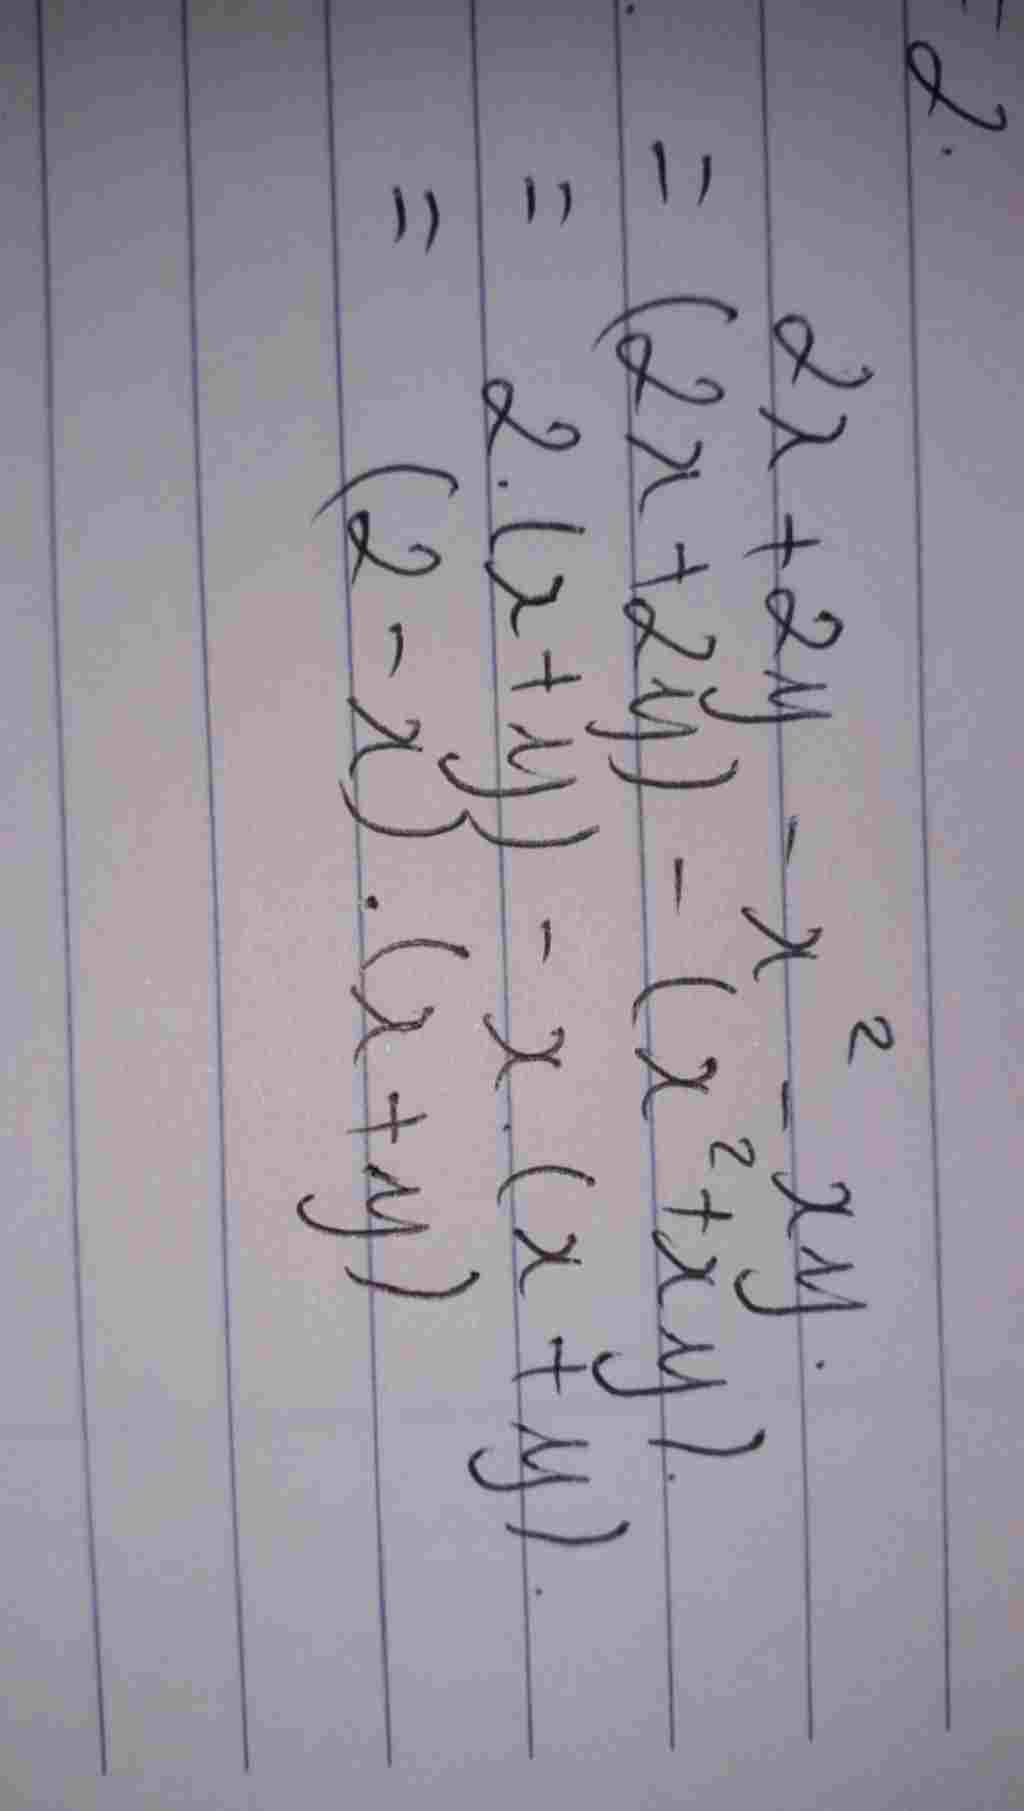 2x + 2y - x² - xy.
= (2x + 2y) - (x² + xy).
= 2.(x + y) - x.(x + y).
= (2 - x).(x + y)